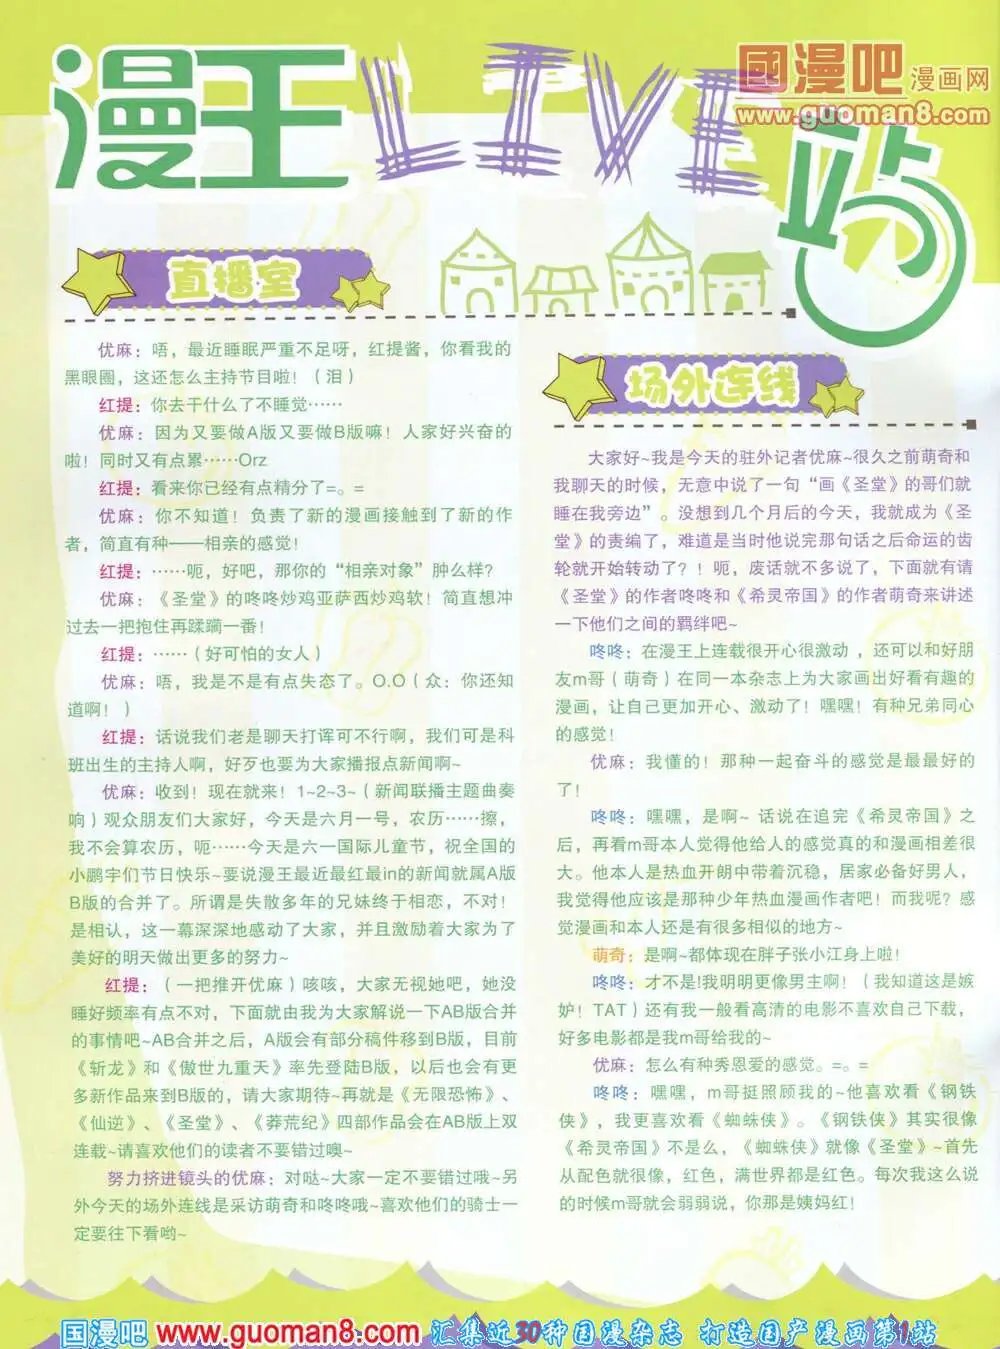 漫王LIVE站
國漫吧漫画网
www.guoman8.com
直播室
优麻：唔，最近睡眠严重不足呀，红提酱，你看我的
黑眼圈，这还怎么主持节目啦！（泪）
红提：你去干什么了不睡觉……
优麻：因为又要做A版又要做B版嘛！人家好兴奋的
啦！同时又有点累……Orz
红提：看来你已经有点精分了=。=
优麻：你不知道！负责了新的漫画接触到了新的作
者，简直有种——相亲的感觉！
红提：……呃，好吧，那你的“相亲对象”肿么样？
优麻：《圣堂》的咚咚炒鸡亚萨西炒鸡软！简直想冲
过去一把抱住再蹂躏一番！
红提：……（好可怕的女人）
优麻：唔，我是不是有点失态了。O.O（众：你还知
道啊！）
红提：话说我们老是聊天打诨可不行啊，我们可是科
班出生的主持人啊，好歹也要为大家播报点新闻啊~
优麻：收到！现在就来！1~2~3~（新闻联播主题曲奏
响）观众朋友们大家好，今天是六月一号，农历……擦，
我不会算农历，呃……今天是六一国际儿童节，祝全国的
小鹏宇们节日快乐~要说漫王最近最红最in的新闻就属A版
B版的合并了。所谓是失散多年的兄妹终于相恋，不对！
是相认，这一幕深深地感动了大家，并且激励着大家为了
美好的明天做出更多的努力~
红提：（一把推开优麻）咳咳，大家无视她吧，她没
睡好频率有点不对，下面就由我为大家解说一下AB版合并
的事情吧~AB合并之后，A版会有部分稿件移到B版，目前
《斩龙》和《傲世九重天》率先登陆B版，以后也会有更
多新作品来到B版的，请大家期待~再就是《无限恐怖》、
《仙逆》、《圣堂》、《莽荒纪》四部作品会在AB版上双
连载~请喜欢他们的读者不要错过噢~
努力挤进镜头的优麻：对哒~大家一定不要错过哦~另
外今天的场外连线是采访萌奇和咚咚哦~喜欢他们的骑士一
定要往下看哟~
场外连线
大家好~我是今天的驻外记者优麻~很久之前萌奇和
我聊天的时候，无意中说了一句“画《圣堂》的哥们就
睡在我旁边”。没想到几个月后的今天，我就成为《圣
堂》的责编了，难道是当时他说完那句话之后命运的齿
轮就开始转动了？！呃，废话就不多说了，下面就有请
《圣堂》的作者咚咚和《希灵帝国》的作者萌奇来讲述
一下他们之间的羁绊吧~
咚咚：在漫王上连载很开心很激动，还可以和好朋
友m哥（萌奇）在同一本杂志上为大家画出好看有趣的
漫画，让自己更加开心、激动了！嘿嘿！有种兄弟同心
的感觉！
优麻：我懂的！那种一起奋斗的感觉是最最好的
了！
咚咚：嘿嘿，是啊~ 话说在追完《希灵帝国》之
后，再看m哥本人觉得他给人的感觉真的和漫画相差很
大。他本人是热血开朗中带着沉稳，居家必备好男人，
我觉得他应该是那种少年热血漫画作者吧！而我呢？感
觉漫画和本人还是有很多相似的地方~
萌奇：是啊~都体现在胖子张小江身上啦！
咚咚：才不是!我明明更像男主啊！（我知道这是嫉
妒！TAT）还有我一般看高清的电影不喜欢自己下载，
好多电影都是我m哥给我的~
优麻：怎么有种秀恩爱的感觉。=。=
咚咚：嘿嘿，m哥挺照顾我的~他喜欢看《钢铁
侠》，我更喜欢看《蜘蛛侠》。《钢铁侠》其实很像
《希灵帝国》不是么，《蜘蛛侠》就像《圣堂》~首先
从配色就很像，红色，满世界都是红色。每次我这么说
的时候m哥就会弱弱说，你那是姨妈红！
国漫吧 www.guoman8.com 汇集近30种国漫杂志 打造国产漫画第1站